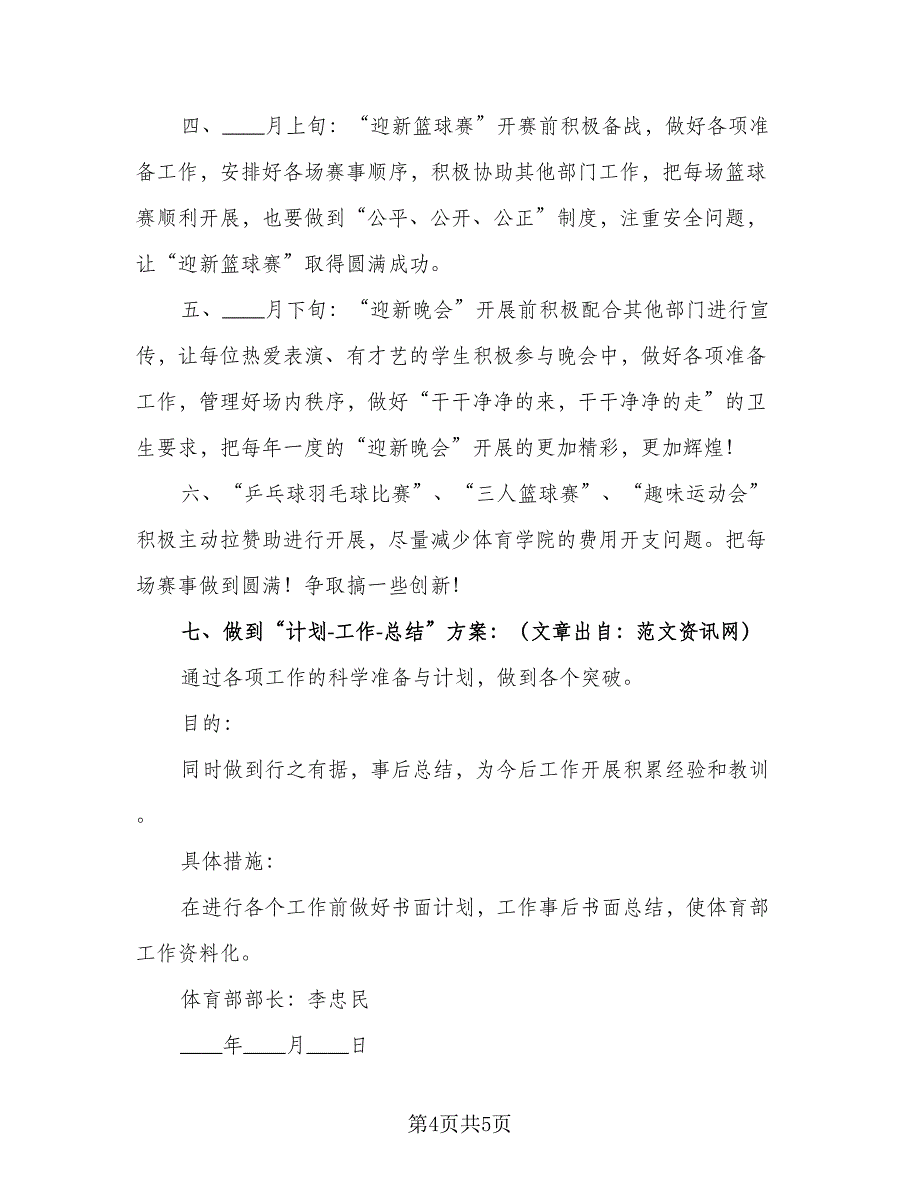 四、____月上旬：“迎新篮球赛”开赛前积极备战，做好各项准
备工作，安排好各场赛事顺序，积极协助其他部门工作，把每场篮球
赛顺利开展，也要做到“公平、公开、公正”制度，注重安全问题，
让“迎新篮球赛”取得圆满成功。
五、____月下旬：“迎新晚会”开展前积极配合其他部门进行宣
传，让每位热爱表演、有才艺的学生积极参与晚会中，做好各项准备
工作，管理好场内秩序，做好“干干净净的来，干干净净的走”的卫
生要求，把每年一度的“迎新晚会”开展的更加精彩，更加辉煌！
六、“乒乓球羽毛球比赛”、“三人篮球赛”、“趣味运动会”
积极主动拉赞助进行开展，尽量减少体育学院的费用开支问题。把每
场赛事做到圆满！争取搞一些创新！
七、做到“计划-工作-总结”方案：（文章出自：范文资讯网）
通过各项工作的科学准备与计划，做到各个突破。
目的：
同时做到行之有据，事后总结，为今后工作开展积累经验和教训
。
具体措施：
在进行各个工作前做好书面计划，工作事后书面总结，使体育部
工作资料化。
体育部部长：李忠民
____年____月____日
第4页共5页